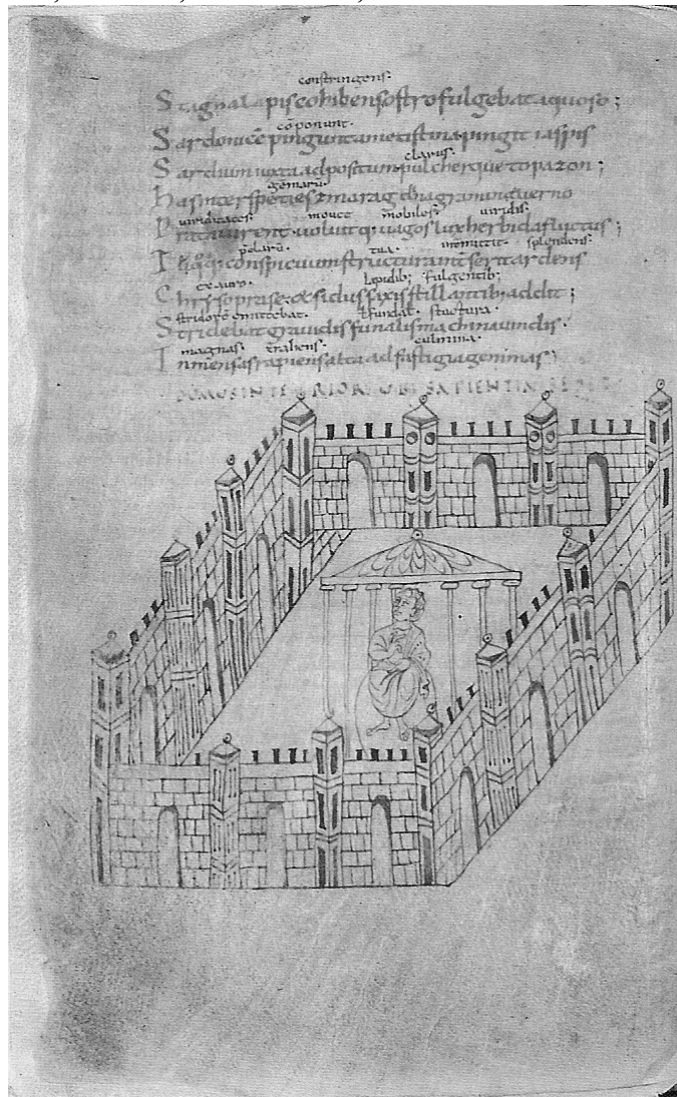 constringens·
Stagna lapis cohibens ostro fulgebat aquoso;
cōponunt·
Sardonicē pingunt ametistina pingit iaspis
clarus·
Sardium iuxta adpositum pulcherque topazon;
gemarū·
has inter species zmaragdina gramine verno
viriditates· movet mobiles· viridis·
Prata virent· voluitq; vagos lux herbida fluctus;
p̄clarū· tua· inmittit· splendens·
Teq̄q; conspicuum structura inter serit ardens
ex auro· lapidib; fulgentib;
Chrysoprase; & sidus saxis stillantib; addit;
stridorē emittebat· structura·
Stridebat gravidis funalis machina vinclis·
magnas· trahens· culmina·
Inmensas rapiens alta ad fastigia gemmas;
DOMUS INTERIOR UBI SAPIENTIA SEDET